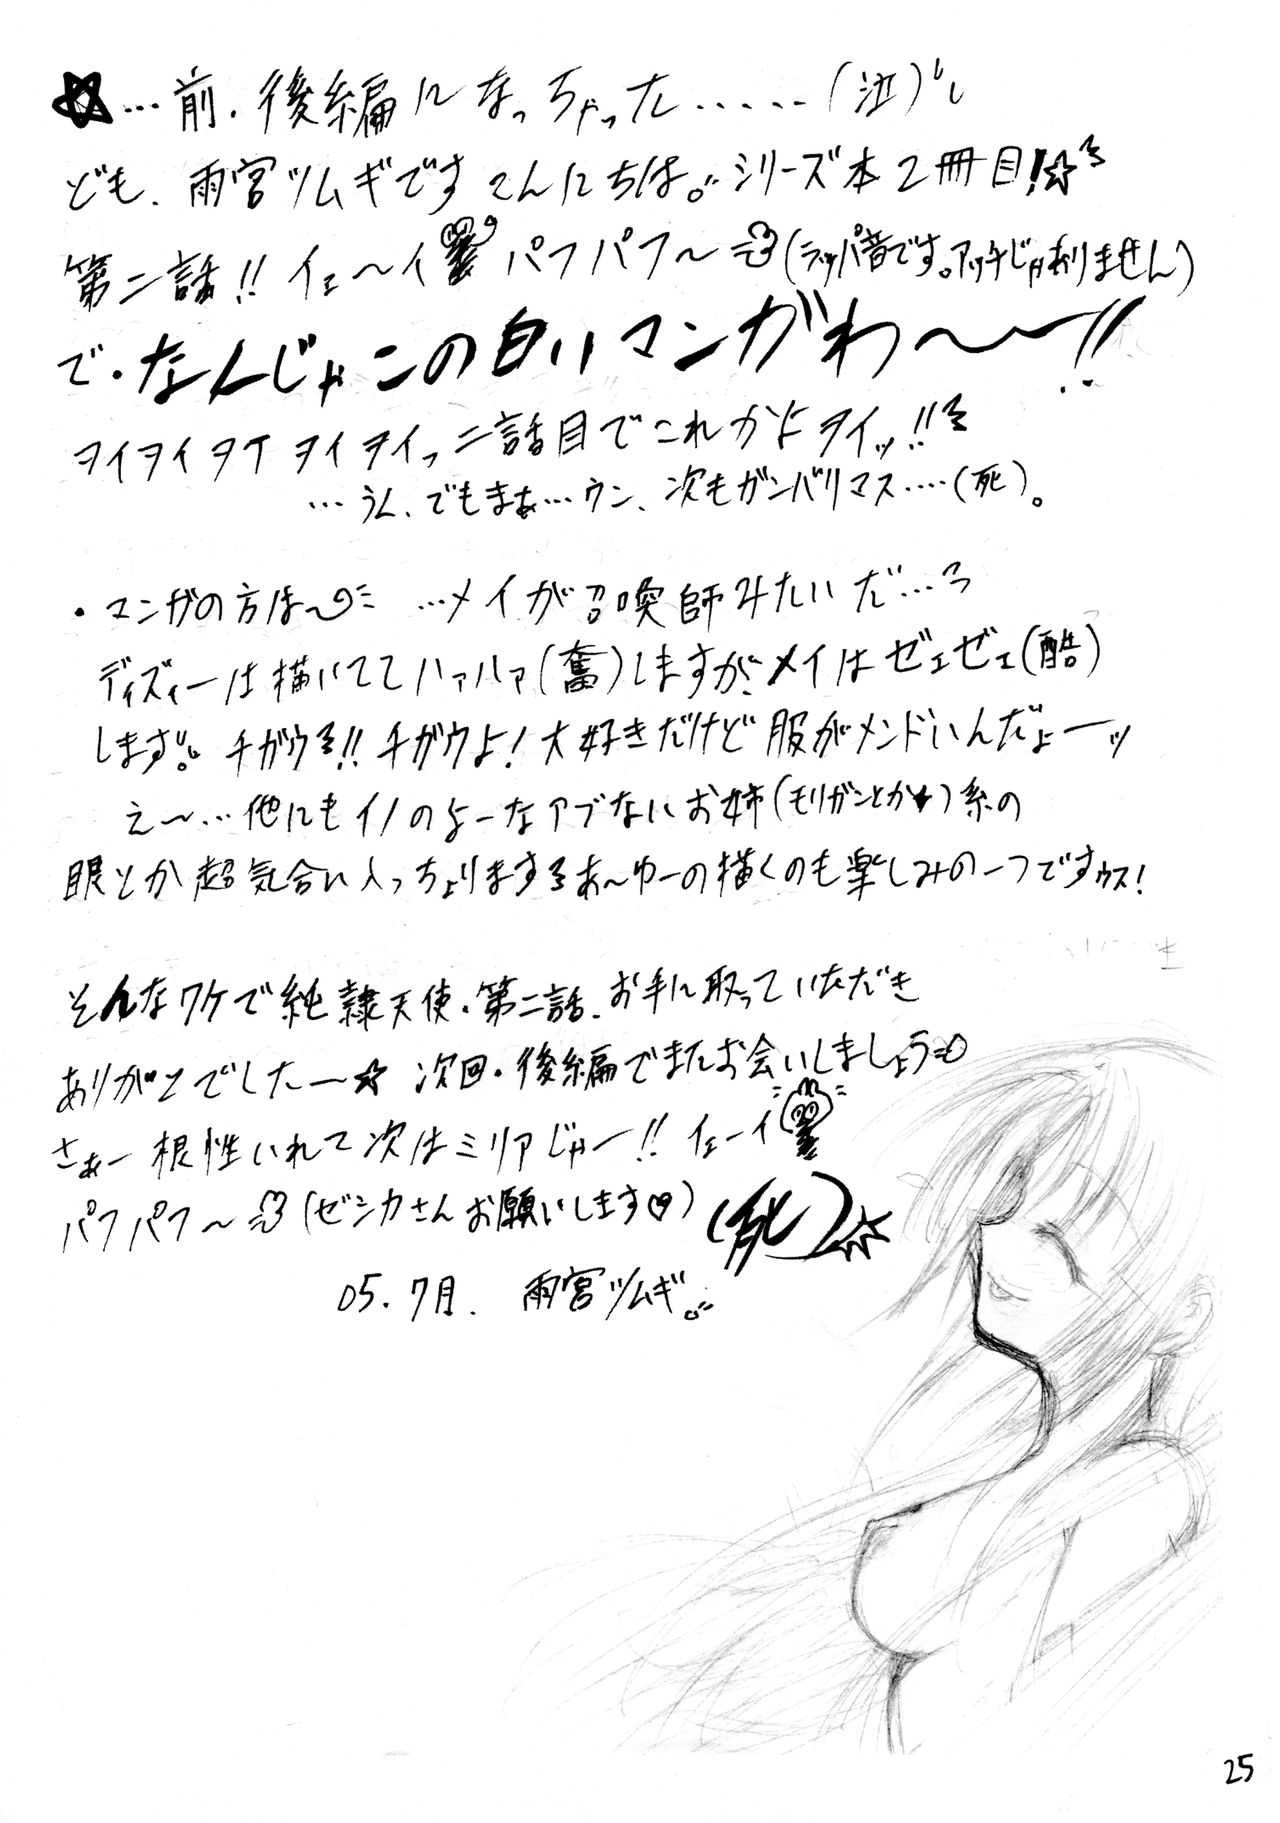 ☆…前．後編になっちゃった……（泣）
ども、雨宮ツムギです こんにちは。シリーズ本2冊目!☆
第二話!! イェ〜イ パフパフ〜（ラッパ音です。アッチじゃありません）
で・なんじゃこの白いマンガわ〜〜!!
ヲイヲイヲイ ヲイヲイっ二話目でこれかよヲイッ!!
…うん、でもまぁ…ウン、次もガンバリマス‥‥（死）。
・マンガの方は〜 …メイが召喚師みたいだ…
ディズィーは描いててハァハァ（奮）しますが、メイはゼェゼェ（酷）
します。チガウ!! チガウよ! 大好きだけど服がメンドいんだよーッ
え〜…他にもイノのよーなアブないお姉（モリガンとか）系の
眼とか超気合い入っちょります あ〜ゆーの描くのも楽しみの一つですゥス!
そんなワケで純隷天使・第二話、お手に取っていただき
ありがとでしたー☆ 次回・後編でまたお会いしましょう
さぁー根性いれて次はミリアじゃー!! イェーイ
パフパフ〜（ゼシカさんお願いします♡）（死）
05.7月． 雨宮ツムギ。
25